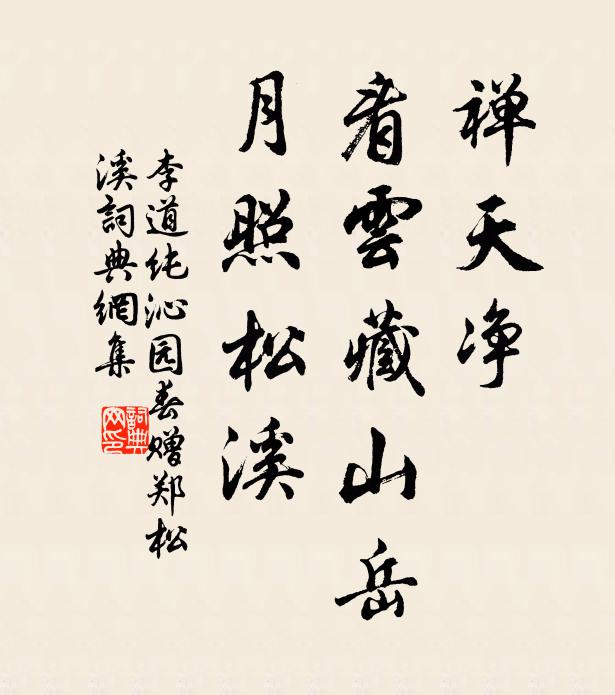 禅天净
看雲藏山岳
月照松溪
李道纯沁园春赠郑松
溪詞典網集
詞典
网印